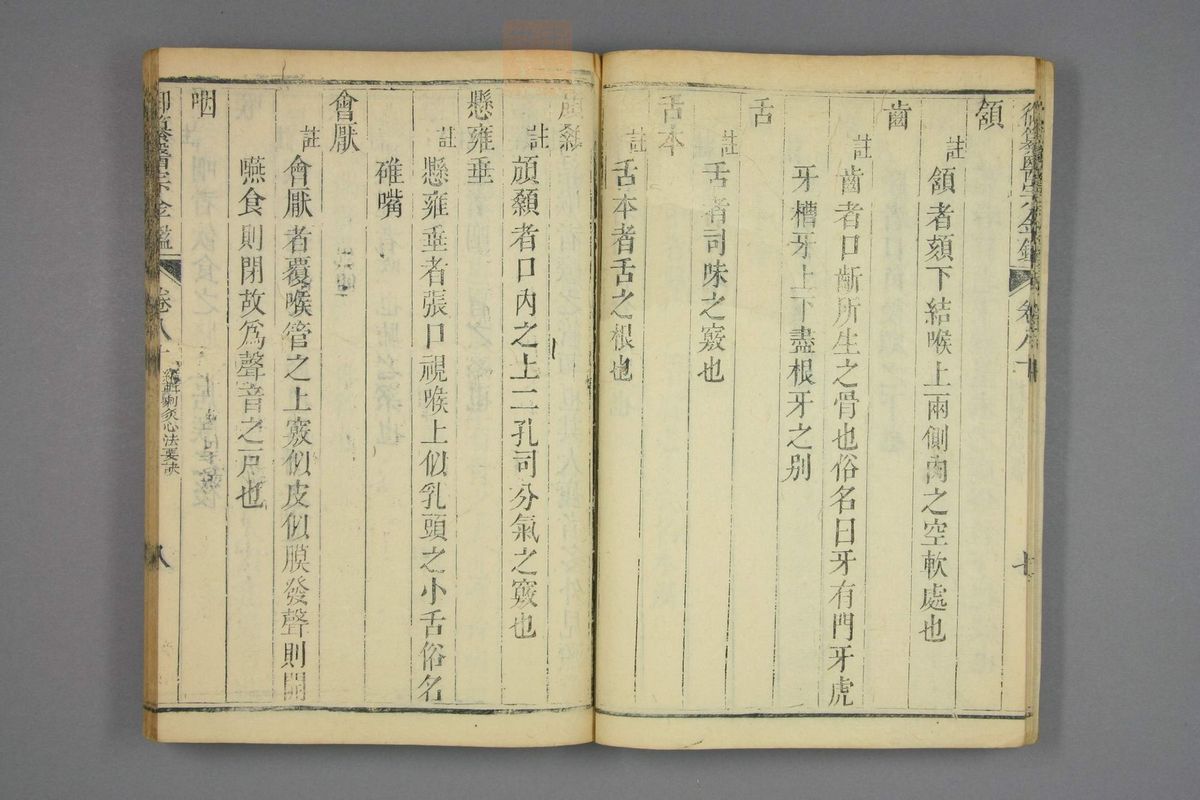 御纂醫宗金鑑
卷八十
七
頷
註頷者頦下結喉上兩側肉之空軟處也
齒
註齒者口齗所生之骨也俗名曰牙有門牙虎
牙槽牙上下盡根牙之别
舌
註舌者司味之竅也
舌本
註舌本者舌之根也
頏顙
註頏顙者口內之上二孔司分氣之竅也
懸雍垂
註懸雍垂者張口視喉上似乳頭之小舌俗名
碓嘴
會厭
註會厭者覆喉管之上竅似皮似膜發聲則開
嚥食則閉故爲聲音之戶也
咽
御纂醫宗金鑑
卷八十
刺灸心法要訣
八